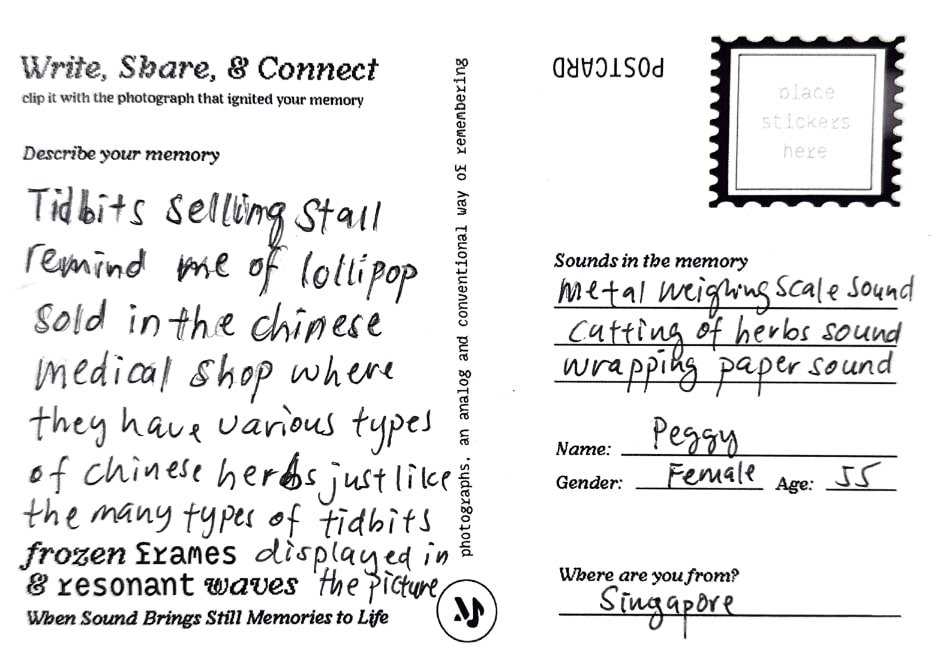 Write, Share, & Connect
clip it with the photograph that ignited your memory
Describe your memory
Tidbits selling stall
remind me of lollipop
sold in the chinese
medical shop where
they have various types
of chinese herbs just like
the many types of tidbits
frozen frames displayed in
& resonant waves the picture
When Sound Brings Still Memories to Life
photographs, an analog and conventional way of remembering
POSTCARD
place
stickers
here
Sounds in the memory
metal weighing scale sound
cutting of herbs sound
wrapping paper sound
Name: Peggy
Gender: Female Age: 55
Where are you from?
Singapore